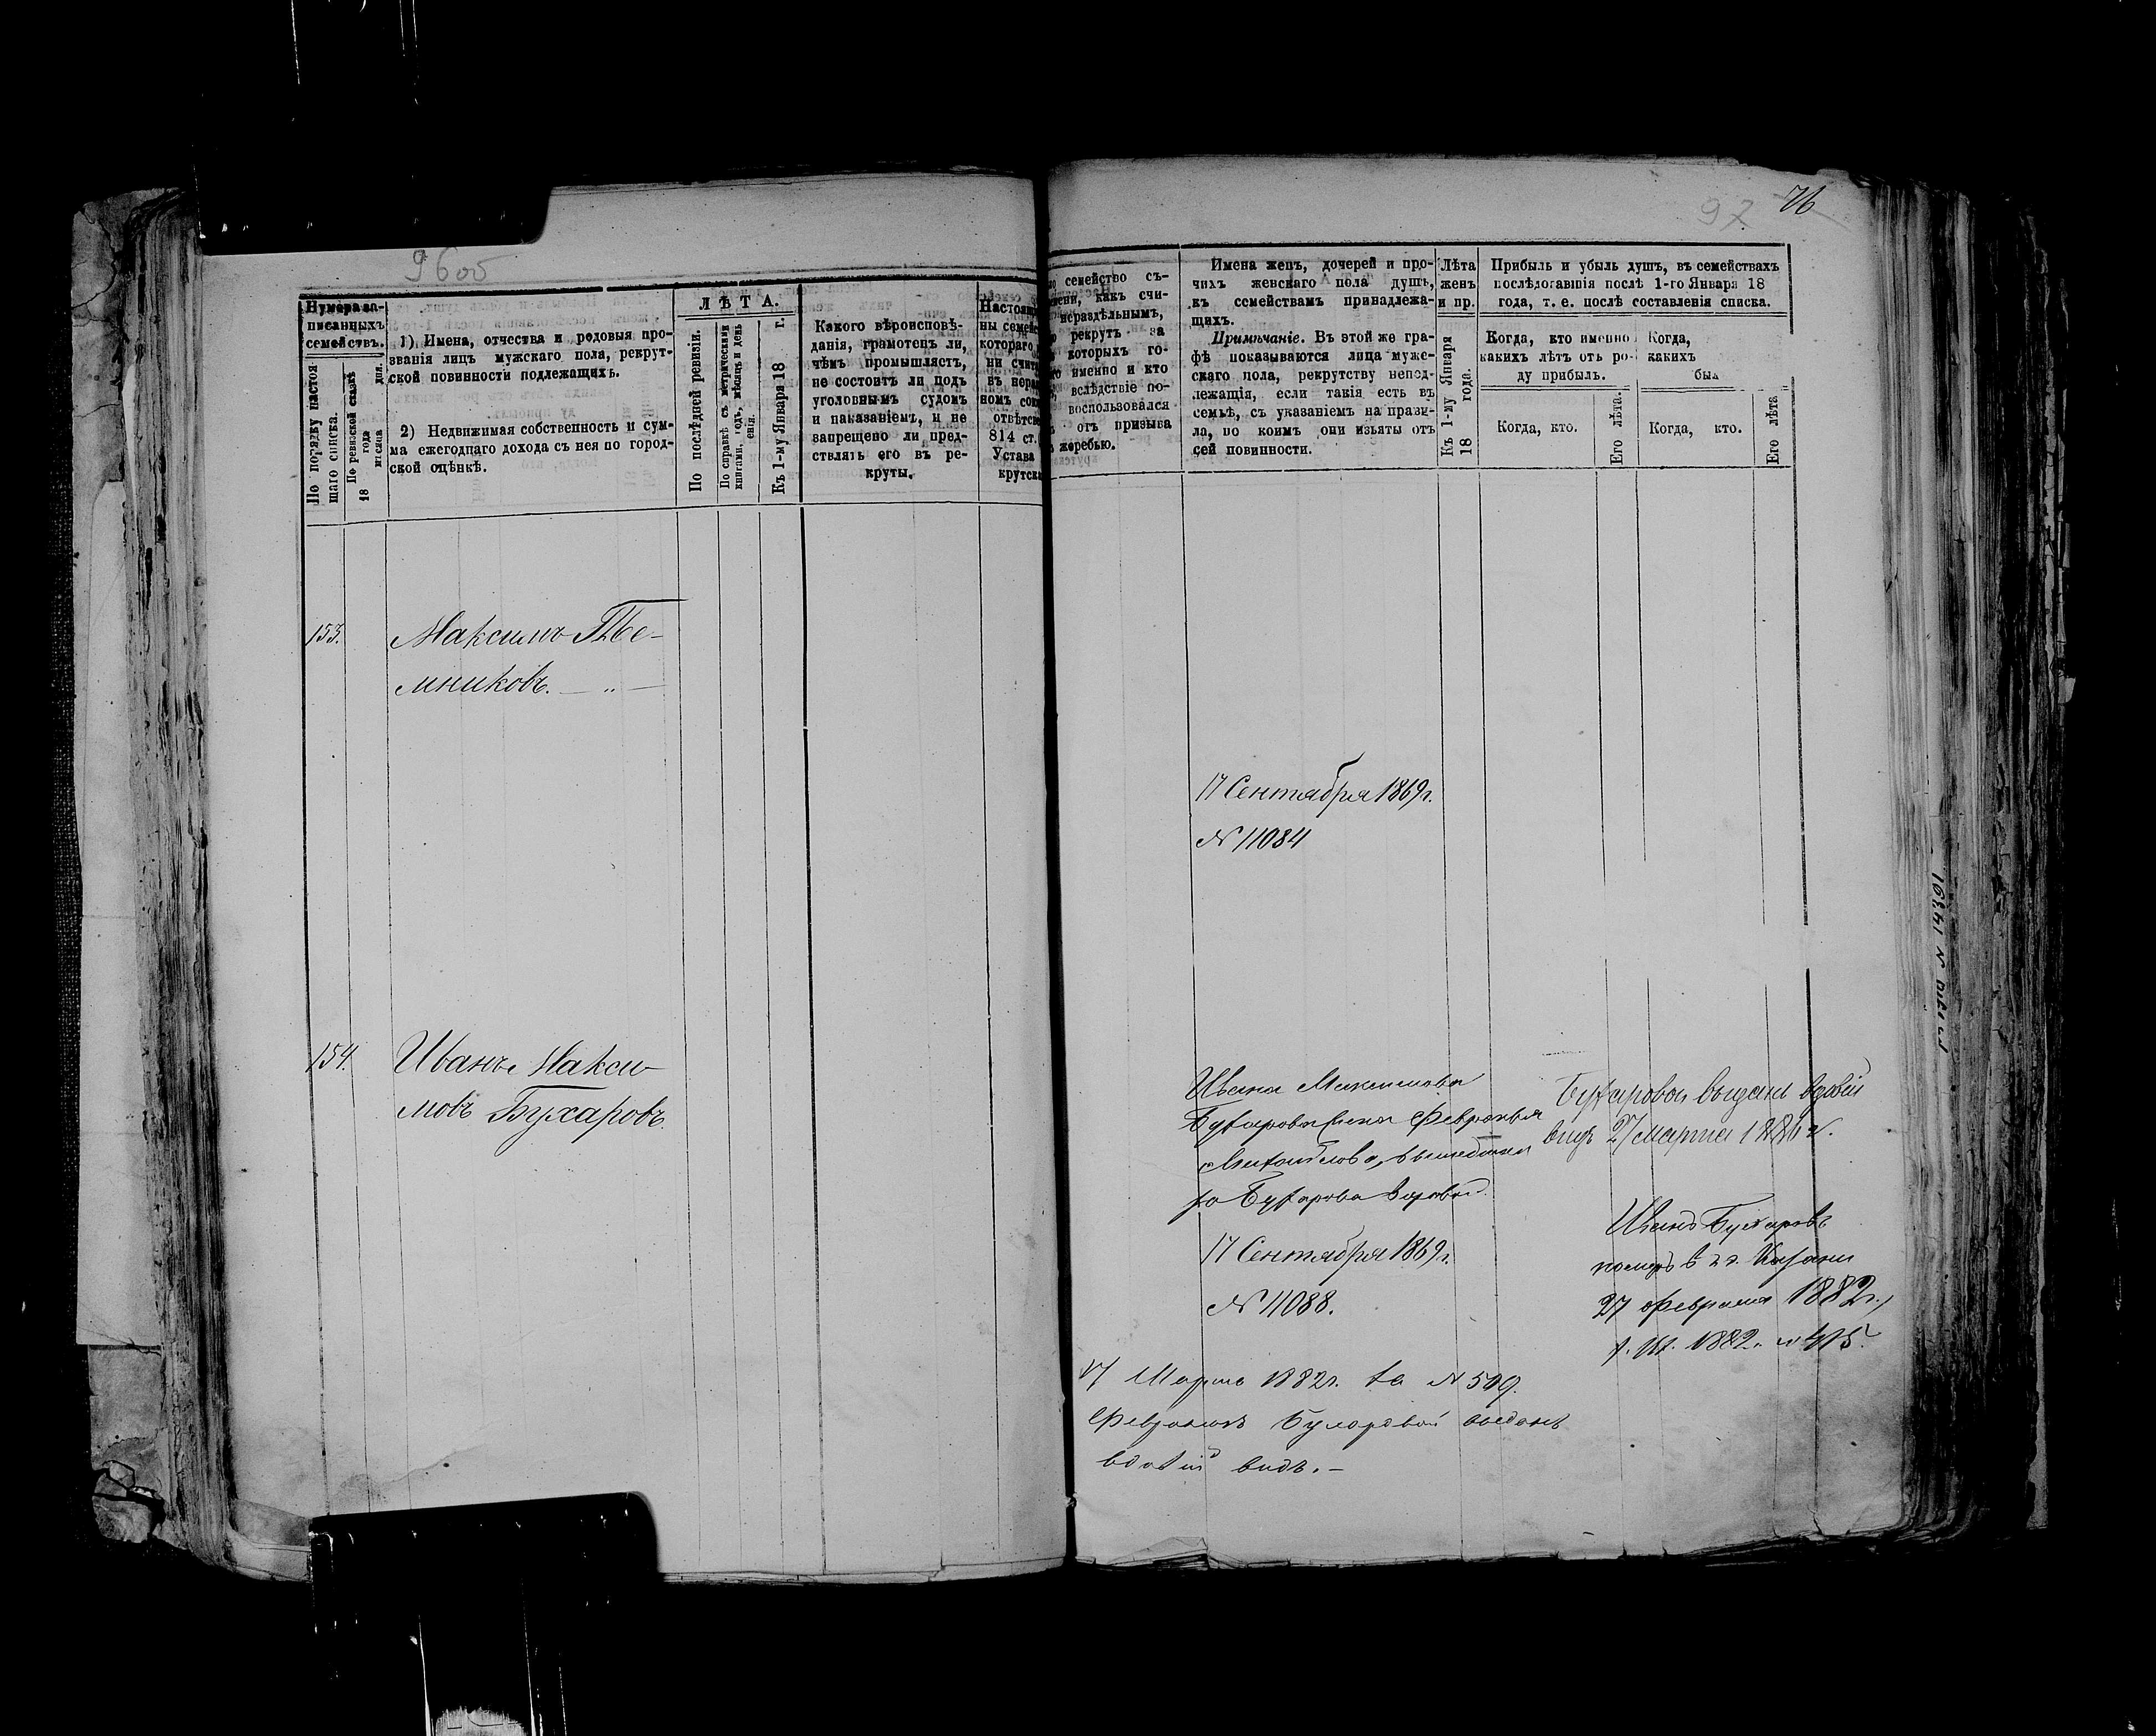 96об
97 76
Нумера за-
писанныхъ
семействъ.
По порядку настоя
щаго списка.
По ревизской сказкѣ
18 года
мѣсяца дня.
1) Имена, отчества и родовыя про-
званія лицъ мужскаго пола, рекрут-
ской повинности подлежащихъ.
2) Недвижимая собственность и сум-
ма ежегоднаго дохода съ нея по город-
ской оцѣнкѣ.
ЛѢТА.
По послѣдней ревизіи.
По справкѣ съ метрическими
книгами, годъ, мѣсяцъ и день
Къ 1-му Января 18 г.
Какого вѣроисповѣ-
данія, грамотенъ ли,
чѣмъ промышляетъ,
не состоитъ ли подъ
уголовнымъ судомъ
и наказаніемъ, и не
запрещено ли пред-
ствлять его въ ре-
круты.
Настоящ
ны семей
котораго
ни счит
въ нера
номъ со
отвѣтс
814 ст.
Устава
крутск
семейство съ-
мени, какъ счи-
нераздѣльнымъ,
рекрутъ за
которыхъ го-
именно и кто
вслѣдствіе по-
воспользовался
отъ призыва
жеребью.
Имена женъ, дочерей и про-
чихъ женскаго пола душъ,
къ семействамъ принадлежа-
щихъ.
Примѣчаніе. Въ этой же гра-
фѣ показываются лица муже-
скаго пола, рекрутству непод-
лежащія, если такія есть въ
семьѣ, съ указаніемъ на прави-
ла, по коимъ они изъяты отъ
сей повинности.
Лѣта
женъ
и пр.
Къ 1-му Января
18 года.
Прибыль и убыль душъ, въ семействахъ
послѣдовавшія послѣ 1-го Января 18
года, т. е. послѣ составленія списка.
Когда, кто именно
какихъ лѣтъ отъ ро-
ду прибылъ.
Когда,
какихъ
бы
Когда, кто.
Его лѣта.
Когда, кто.
Его лѣта
153.
Максимъ Те-
мниковъ. — „ —
17 Сентября 1869 г.
№ 11084
154.
Иванъ Макси-
мовъ Бухаровъ.
Ивана Максимова
Бухарова жена Февронья
Михайлова, вышедшая
за Бухарова вдовой.
17 Сентября 1869 г.
№ 11088.
Бухаровой выданъ вдовій
видъ 27 Марта 1886 г.
Иванъ Бухаровъ
померъ въ г. Казани
27 Февраля 1882 г.,
1882 № 415.
17 Марта 1882 г. за № 509.
Февроніи Бухаровой выданъ
вдовій видъ. —